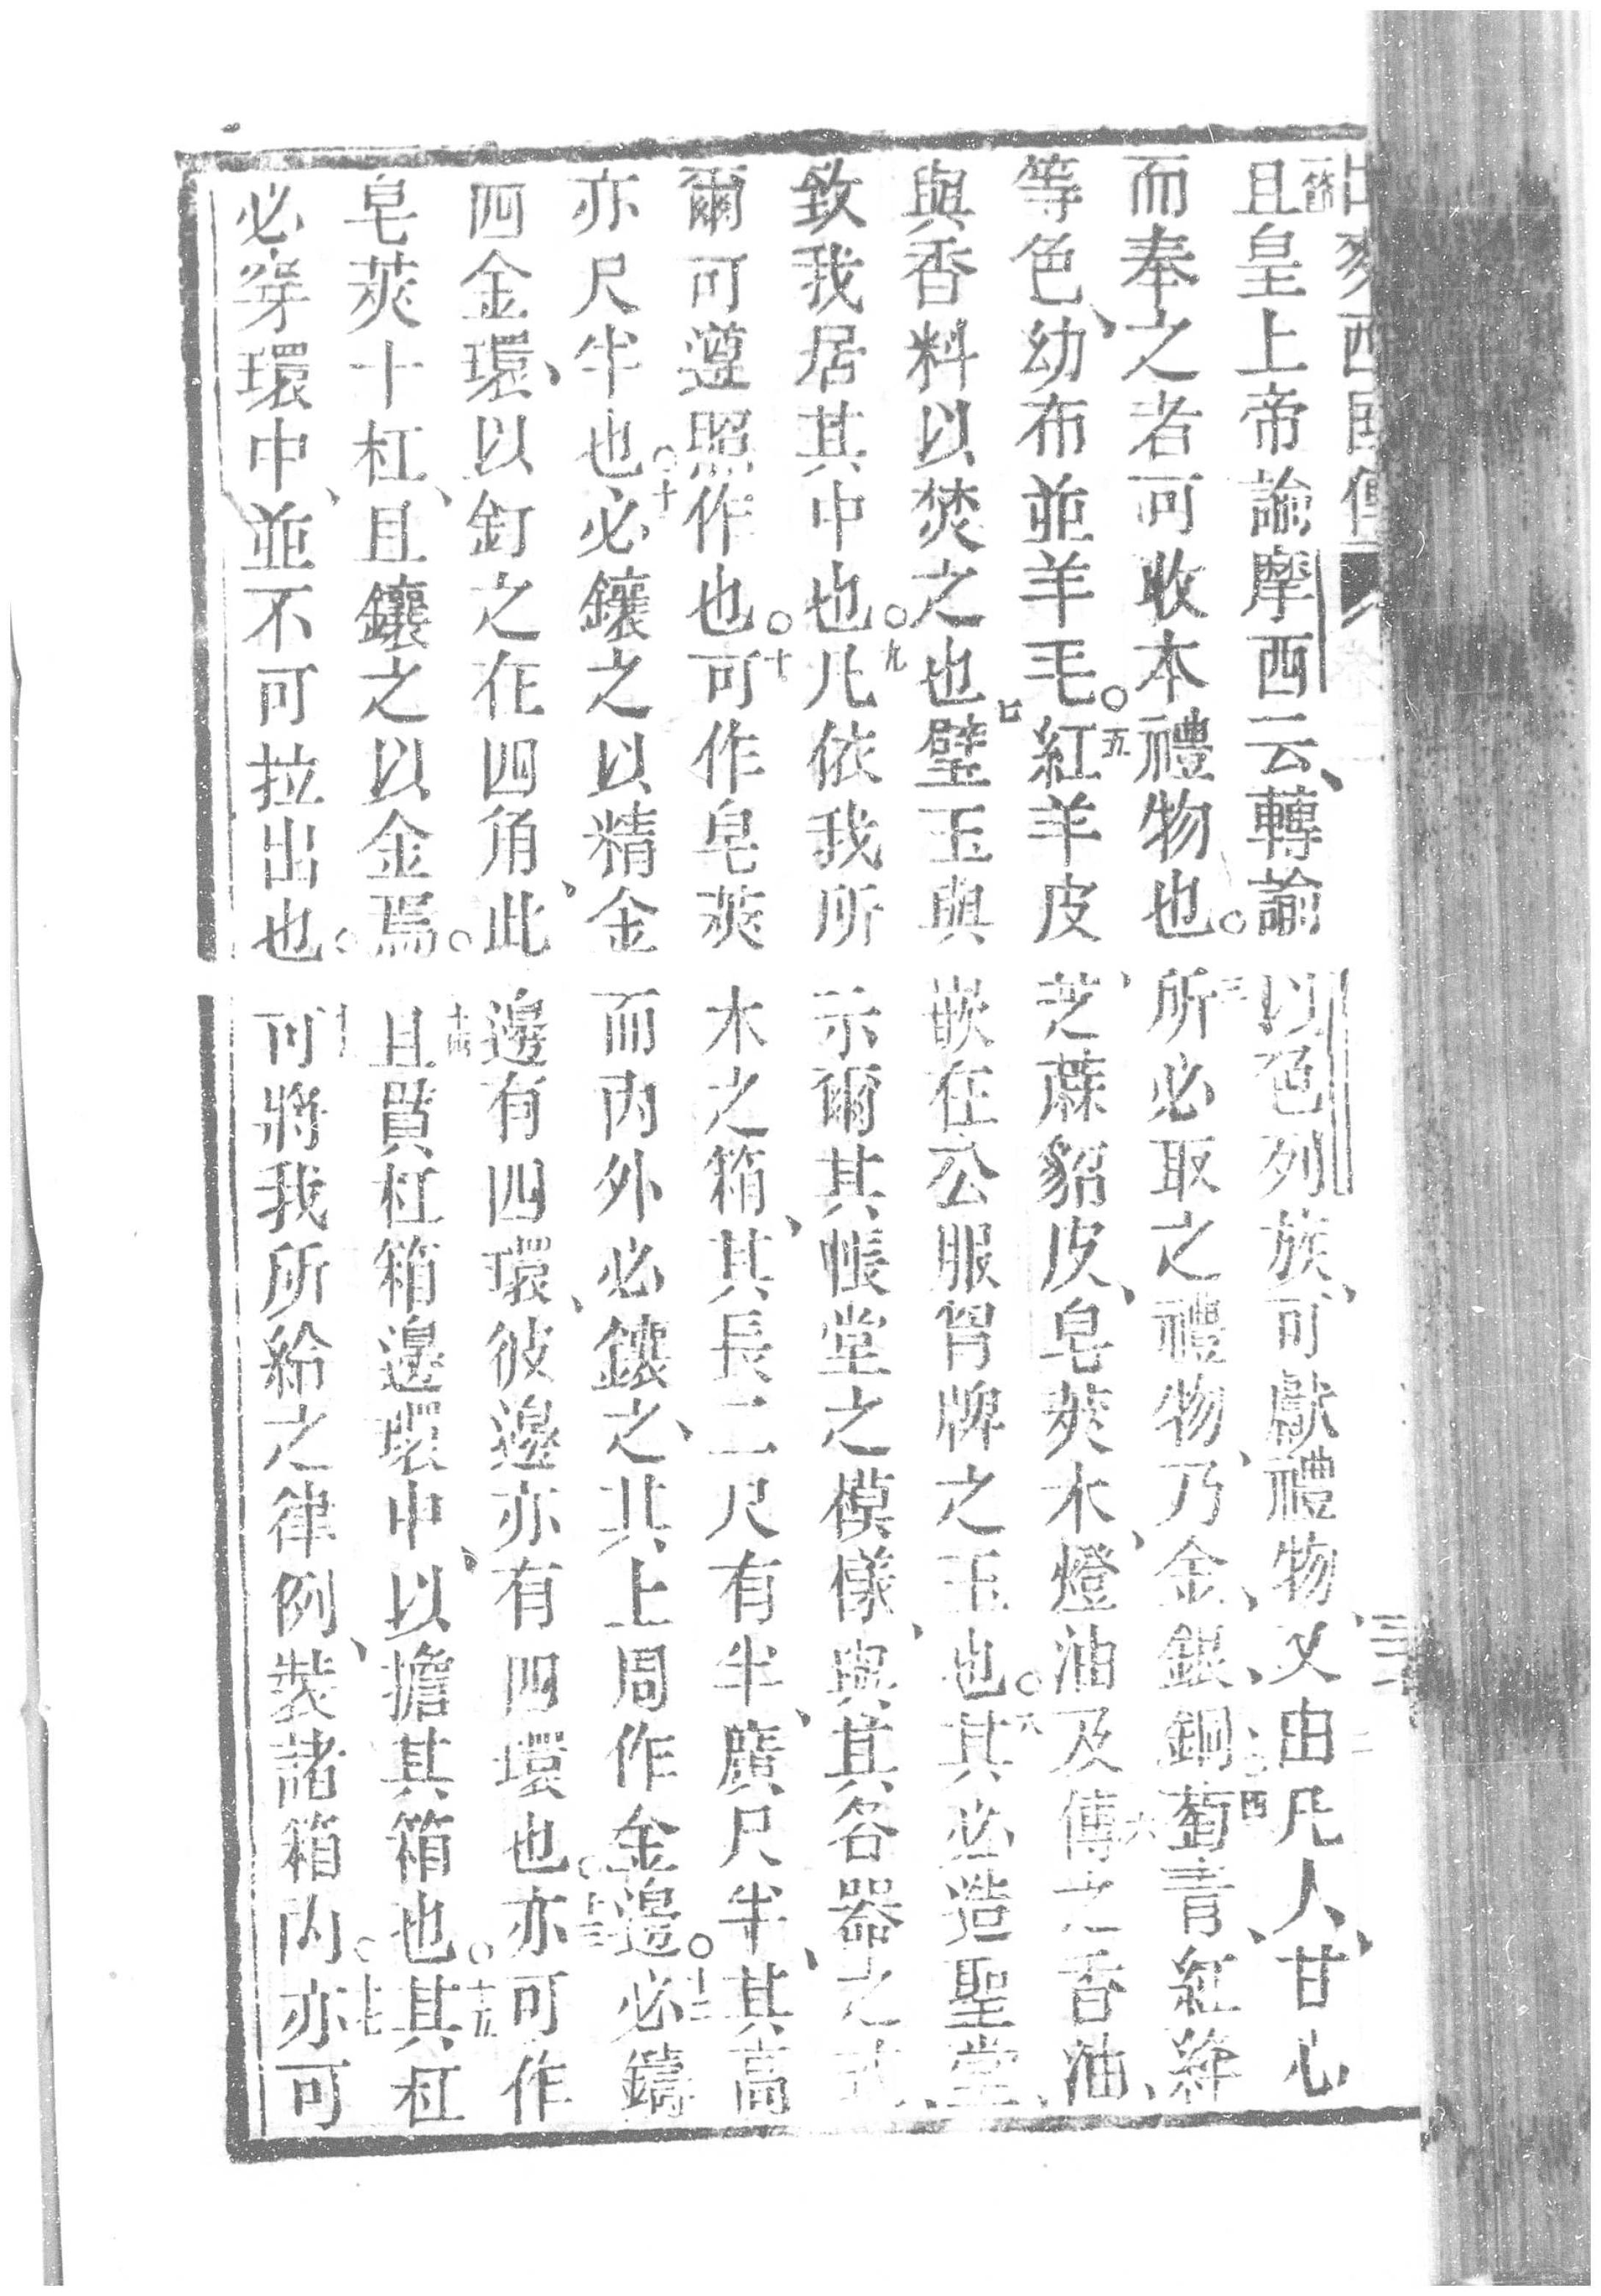 出麥西國傳
且皇上帝諭摩西云、轉諭以色列族、可獻禮物、又由凡人、甘心
而奉之者可收本禮物也。三所必取之禮物、乃金、銀、銅、四葡青、紅、絳
等色、幼布並羊毛。五紅羊皮、芝蔴貂皮、皂莢木、燈油及六傅之香油、
與香料以焚之也七璧玉與嵌在公服胷牌之玉也。八其必造聖堂、
致我居其中也。九凡依我所示爾其帳堂之模樣、與其各器之式、
爾可遵照作也。十可作皂莢木之箱、其長二尺有半、廣尺半、其高
亦尺半也。十必鑲之以精金而內外必鑲之、其上周作金邊。十二必鑄
四金環、以釘之在四角、此邊有四環、彼邊亦有四環也。十三亦可作
皂莢十杠、且鑲之以金焉。十四且貫杠箱邊環中、以擔其箱也。十五其杠
必穿環中、並不可拉出也。可將我所給之律例、裝諸箱內。十七亦可